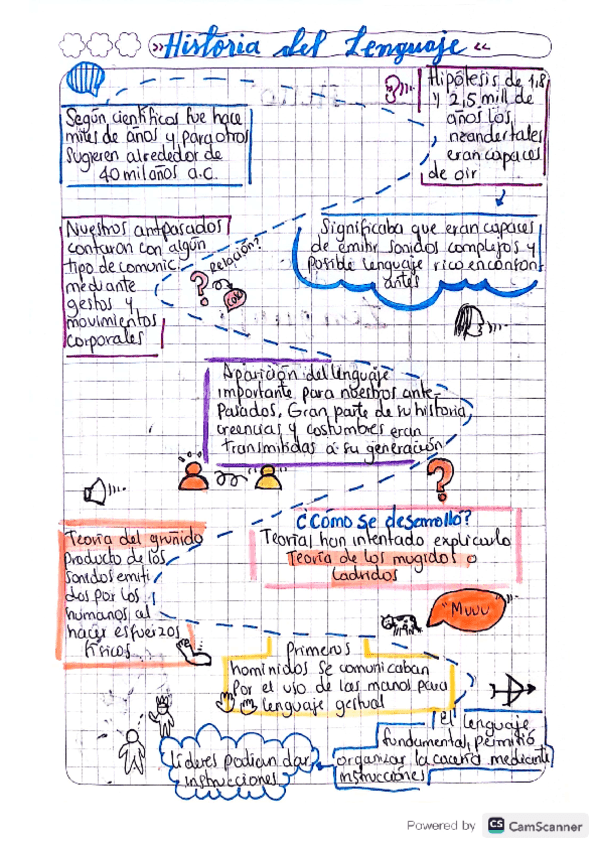 »Historia del Lenguaje«
Según científicos fue hace
miles de años y para otros
sugieren alrededor de
40 mil años a.c.
Hipótesis de 1,8
y 2,5 mill de
años los
neandertales
eran capaces
de oir
Significaba que eran capaces
de emitir sonidos complejos y
posible lenguaje rico en conson
antes
Nuestros antpasados
contaran con algún
tipo de comunic.
mediante
gestos y
movimientos
corporales
Relación?
Aparición del lenguaje
importante para nuestros ante-
pasados, Gran parte de su historia,
creencias y costumbres eran
transmitidas a su generación
¿Cómo se desarrolló?
Teorías han intentado explicarlo
Teoría de los mugidos o
ladridos
"Muuu"
Teoría del gruñido
producto de los
sonidos emiti
dos por los
humanos al
hacer esfuerzos
físicos
Primeros
hominidos se comunicaban
por el uso de las manos para
lenguaje gestual
el lenguaje
fundamental, permitió
organizar la cacería mediante
instrucciones
Líderes podían dar
instrucciones
Powered by CS CamScanner